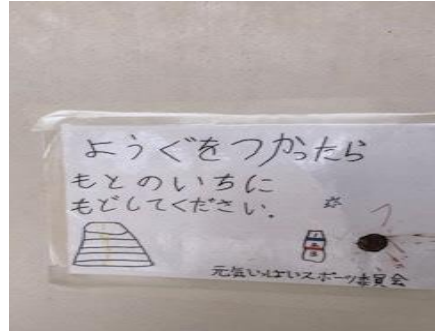 ようぐをつかったら
もとのいちに
もどしてください.
元気いっぱいスポーツ委員会